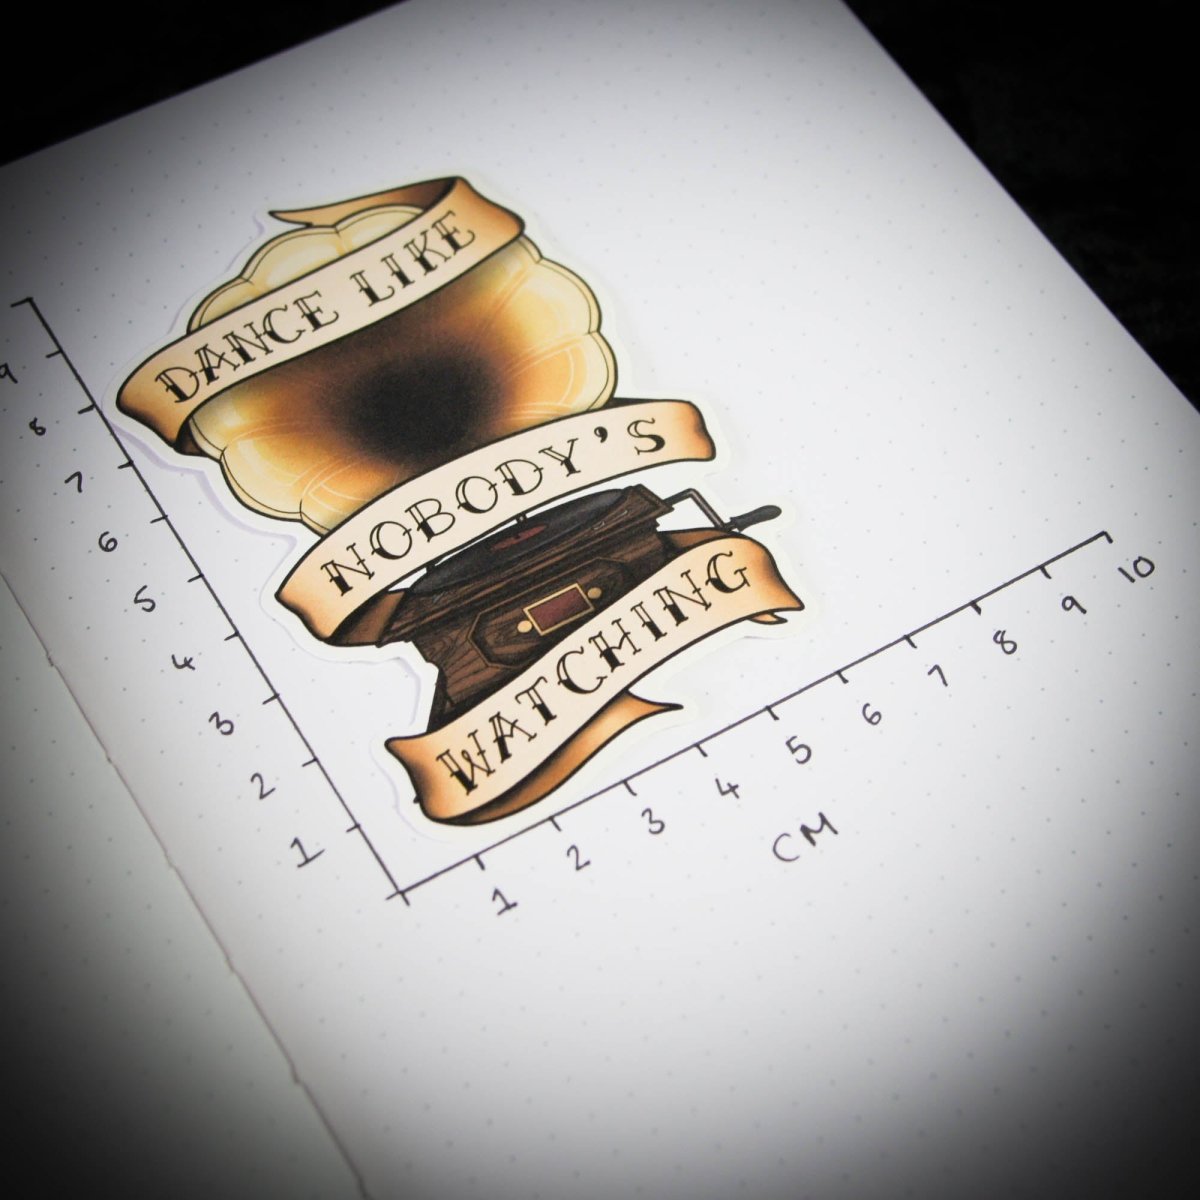 DANCE LIKE
NOBODY'S
WATCHING
9
8
7
6
5
4
3
2
1
1 2 3 4 5 6 7 8 9 10
CM